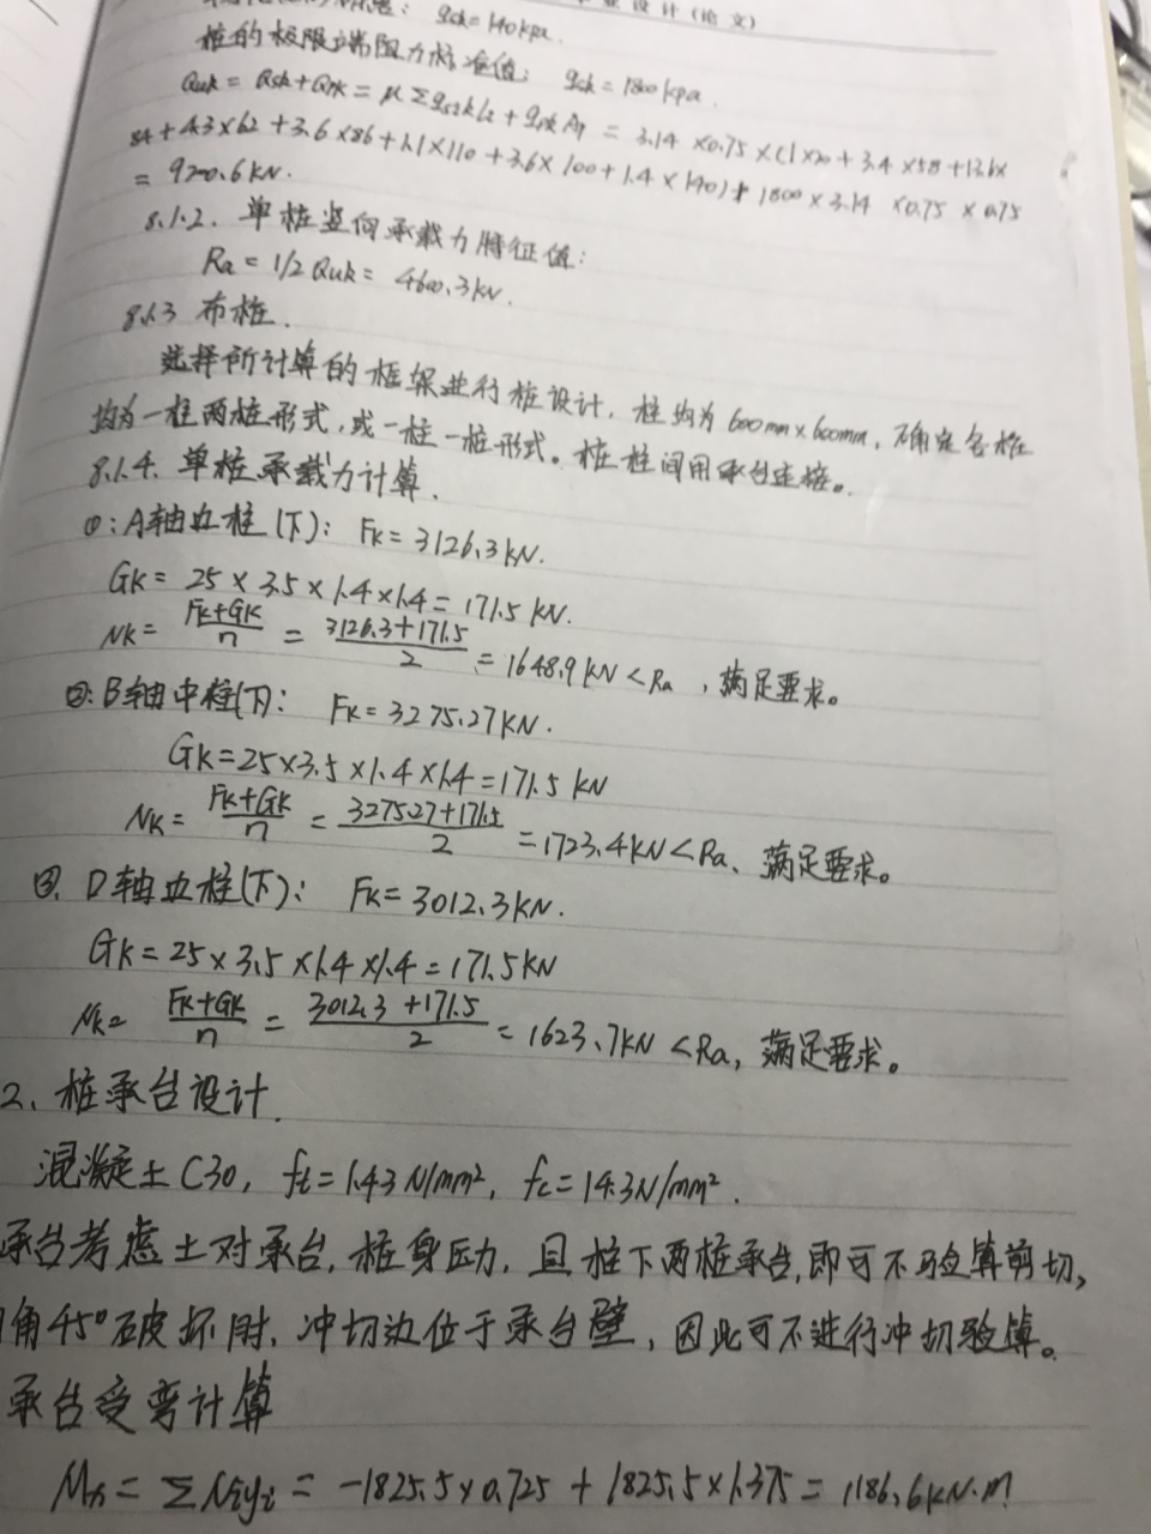 业设计(论文)
qsk=140kpa.
桩的极限端阻力标准值: qsk=1800kpa.
Quk=Qsk+Qpk=μΣqsikli+qpkAp=3.14×0.75×(1×20+3.4×58+13.6×
84+4.3×62+3.6×86+1.1×110+3.6×100+1.4×140)+1800×3.14×0.75×0.75
=9200.6kN.
8.1.2. 单桩竖向承载力特征值:
Ra=1/2Quk=4600.3kN.
8.1.3 布桩.
选择所计算的框架进行桩设计, 柱均为600mm×600mm, 确定各桩
均为一柱两桩形式,或一柱一桩形式。桩柱间用承台连接。
8.1.4. 单桩承载力计算.
①:A轴边柱(下): Fk=3126.3kN.
Gk=25×3.5×1.4×1.4=171.5kN.
Nk=Fk+Gk/n=3126.3+171.5/2=1648.9kN<Ra,满足要求。
②:B轴中柱(下): Fk=3275.27kN.
Gk=25×3.5×1.4×1.4=171.5kN
Nk=Fk+Gk/n=3275.27+171.5/2=1723.4kN<Ra、满足要求。
③. D轴边柱(下): Fk=3012.3kN.
Gk=25×3.5×1.4×1.4=171.5kN
Nk=Fk+Gk/n=3012.3+171.5/2=1623.7kN<Ra,满足要求。
2、桩承台设计.
混凝土C30, ft=1.43N/mm², fc=14.3N/mm².
承台考虑土对承台,桩身压力,且柱下两桩承台,即可不验算剪切,
角45°破坏时,冲切边位于承台壁,因此可不进行冲切验算。
承台受弯计算
Mn=ΣNiyi=-1825.5×0.725+1825.5×1.375=1186.6kN.m